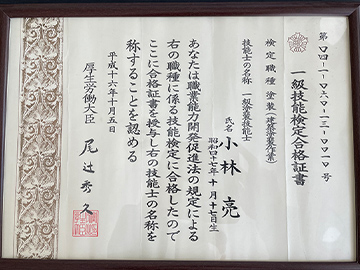 第〇四-一-〇六〇-一三-〇〇一〇号
一級技能検定合格証書
検定職種 塗装(建築塗装作業)
技能士の名称 一級塗装技能士
氏名 小林亮
昭和四十七年十月十七日生
あなたは職業能力開発促進法の規定による
右の職種に係る技能検定に合格したので
ここに合格証書を授与し右の技能士の名称を
称することを認める
平成十六年十月五日
厚生労働大臣 尾辻秀久